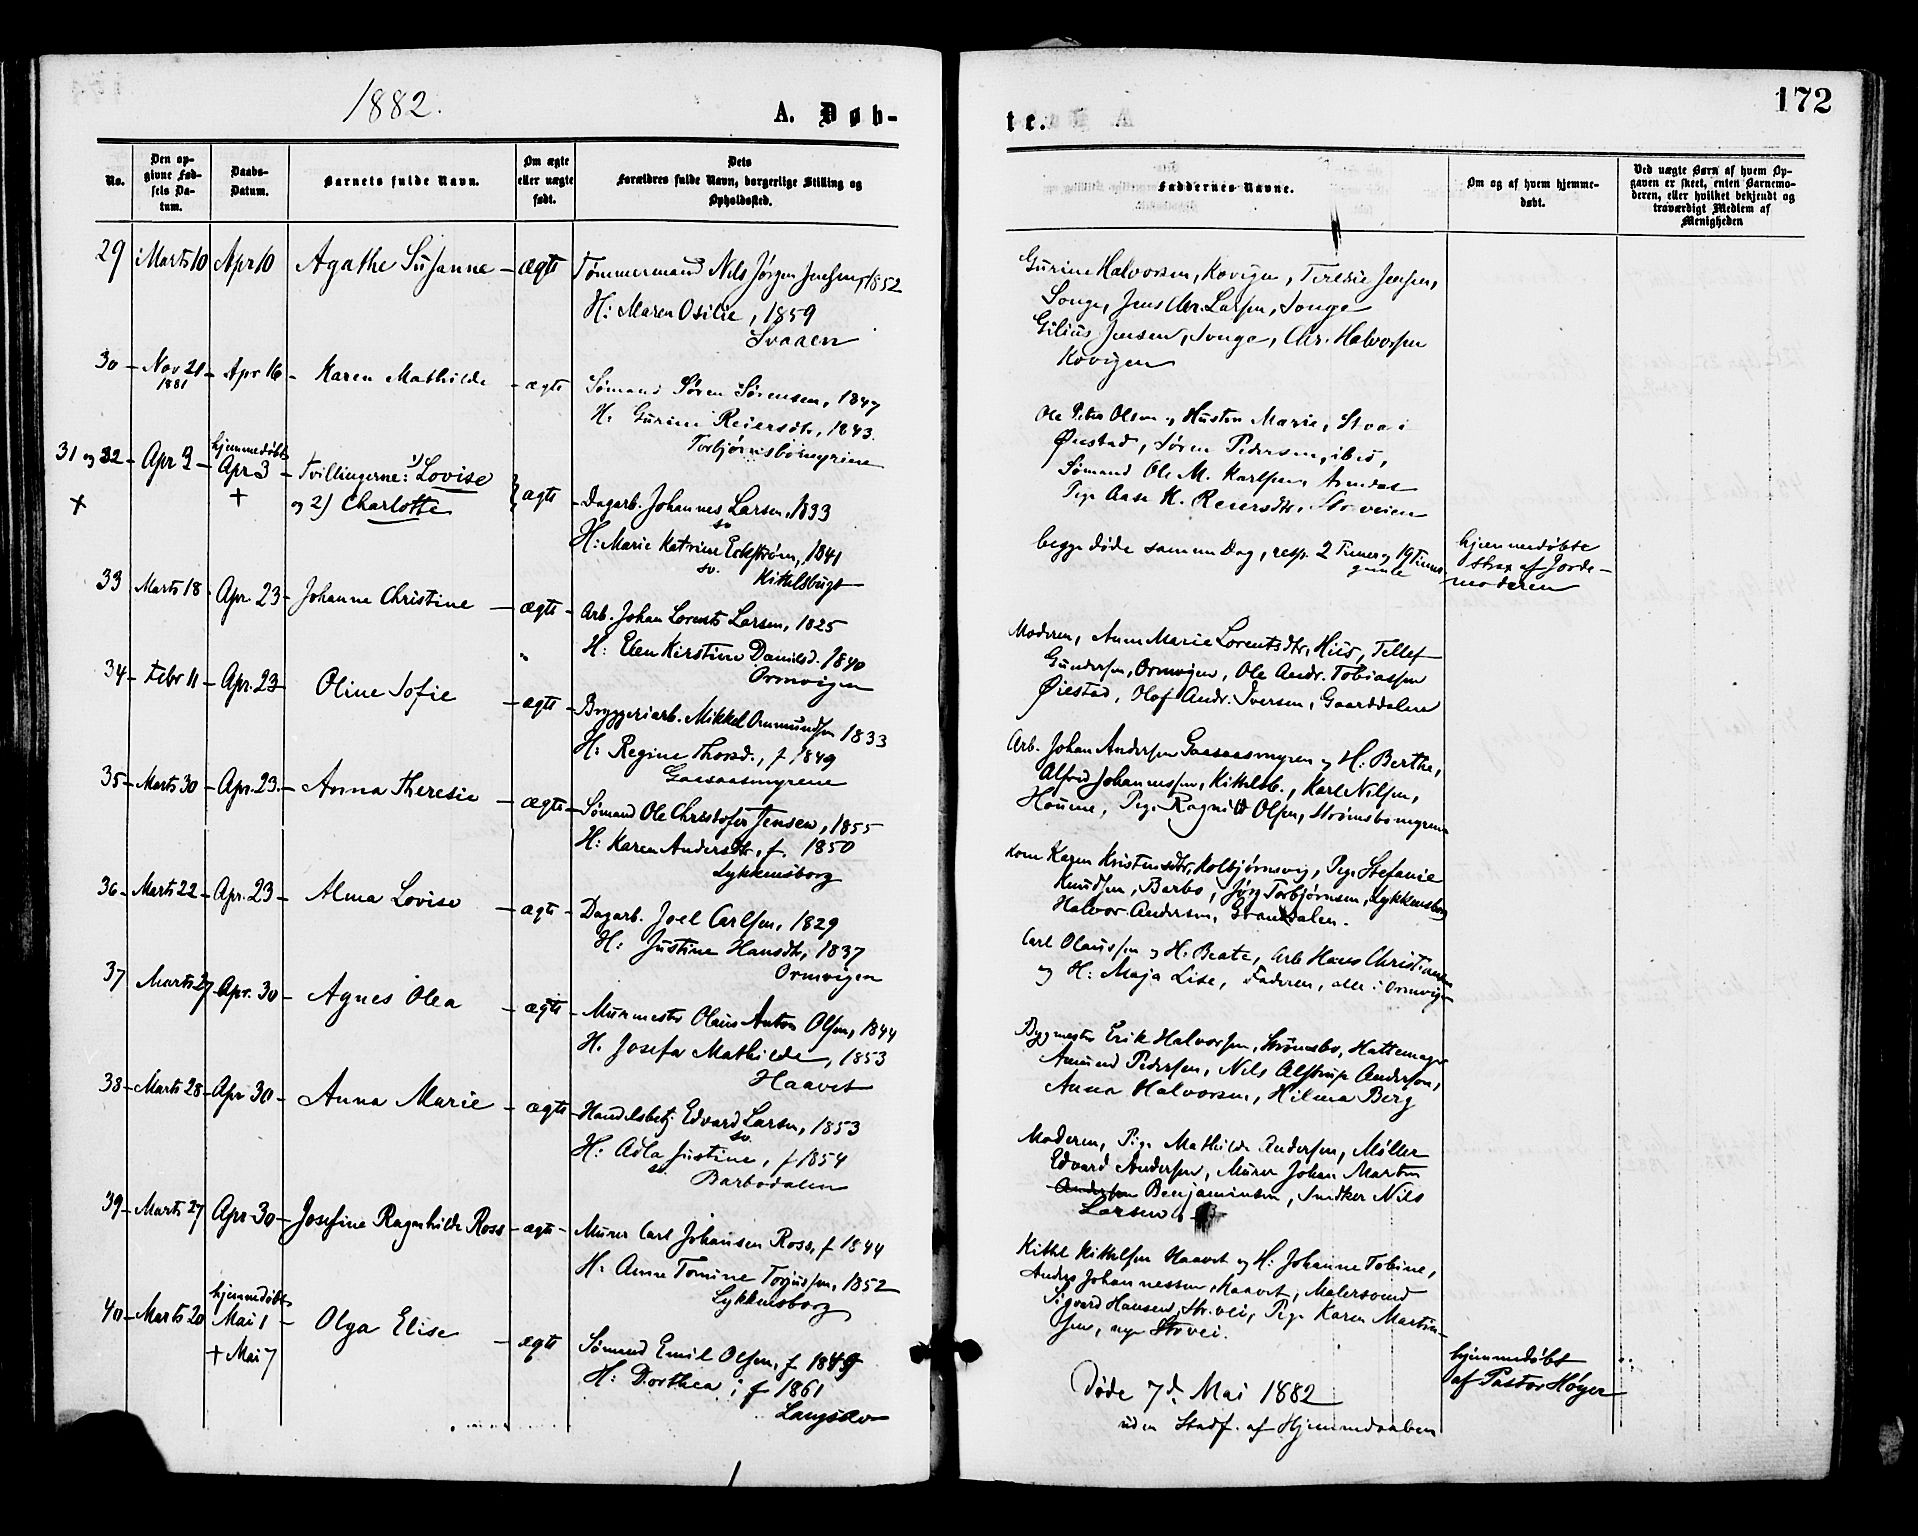 1882.
A. Døb-
No.
Den op-
givne Fød-
sels Da-
tum.
Daabs-
Datum.
Barnets fulde Navn.
Om ægte
eller uægte
født.
Dets
Forældres fulde Navn, borgerlige Stilling og
Opholdssted.
29 Marts 10 Apr 10 Agathe Susanne – ægte Tømmermand Nils Jørgen Jensen, 1852
H: Maren Osilie, 1859
Svaaen
30 – Nov 21 – Apr 16 – Karen Mathilde – ægte Sømand Søren Sørensen, 1847
1881
H. Gurine Reiersdtr, 1843.
Torbjørnsbomyrene
31 og 32 – Apr 3 – hjemmedøbt Apr 3 – Tvillingerne: 1) Lovise
+ + og 2) Charlotte } ægte – Dagarb. Johannes Larsen, 1833
sv.
H: Marie Katrine Eckstrøm, 1841
sv. Kittelsbugt
33 Marts 18 Apr. 23 – Johanne Christine – ægte – Arb. Johan Lorents Larsen, 1825
H: Elen Kirstine Danielsd. 1840
Ormvigen
34 – Febr 11 – Apr. 23 Oline Sofie – ægte – Bryggeriarb. Mikkel Ommundsen 1833
H: Regine Thorsd., f 1849
Gaasaasmyrene
35 – Marts 30 – Apr. 23. – Anna Theresie – ægte – Sømand Ole Christofer Jensen, 1855
H: Karen Andersdtr, f. 1850
Lykkensborg
36 – Marts 22 – Apr. 23 – Alma Lovise – ægte – Dagarb. Joel Carlsen, 1829
H: Justine Hansdtr, 1837
Ormvigen
37 Marts 27 Apr. 30 – Agnes Olea – ægte – Murmester Olaus Anton Olsen, 1844
H. Josefa Mathilde, 1853
Haavet
38 – Marts 28 – Apr 30 – Anna Marie – ægte – Handelsbetj Edvard Larsen, 1853
sv.
H: Adla Justine, f 1854
sv. Barbodalen
39 – Marts 27 Apr 30 – Josefine Ragnhilde Ross – ægte – Murer Carl Johansen Ross, f 1844
H: Anne Tomine Torjussen, 1852
Lykkensborg
40 – Marts 20 hjemmedøbt Mai 1 – Olga Elise – ægte Sømand Emil Olsen, f 1849
+ Mai 7
H: Dorthea, f 1861
Langsæv
172
te.
Faddernes Navne.
Om og af hvem hjemme-
døbt.
Ved uægte Børn af hvem Op-
gaven er skeet, enten Barnemo-
deren, eller hvilket bekjendt og
troværdigt Medlem af
Menigheden
Gurine Halvorsen, Kovigen, Teresie Jensen,
Songe, Jens Chr. Larsen, Songe
Gilius Jensen, Songe, Chr. Halvorsen
Kovigen
Ole Peter Olsen og Hustru Marie, Stoa i
Øiestad, Søren Pedersen, ibid,
Sømand Ole M. Karlsen, Arendal
Pige Aase K. Reiersdtr. Storveien
begge døde samme Dag, resp. 2 Timer og 19 Timer
gamle
hjemmedøbte
strax af Jorde-
moderen
Moderen, Anne Marie Lorentsdtr, His, Tellef
Gundersen, Ormvigen, Ole Andr. Tobiassen
Øiestad, Olaf Andr. Iversen, Gaarddalen
Arb. Johan Andersen Gaasaasmyren og H: Berthe,
Alfred Johannessen, Kittelsb., Karl Nilsen,
Houene, Pige Ragnild Olsen, Strømsbomyrene
Kone Karen Kristensdtr, Kolbjørnsvig, Pige Stefanie
Knudsen, Barbo, Jørg Torbjørnsen, Lykkensborg
Halvor Andersen, Grandalen.
Carl Olaussen og H. Beate, Arb Hans Christiansen
og H: Maja Lise, Faderen, alle i Ormvigen
Bygmester Erik Halvorsen, Strømsbo, Hattemager
Amund Pedersen, Nils Alstrup Andersen,
Anna Halvorsen, Hilma Berg
Moderen, Pige Mathilde Andersen, Møller
Edvard Andersen, Murer Johan Martin
Andersen Benjaminsen, Snedker Nils
Larsen
Kittel Kittelsen Haavet og H: Johanne Tobine,
Anders Johannessen, Haavet, Malersvend
Sigvard Hansen, Str.vei, Pige Karen Martin-
sen, nye Strvei.
Døde 7d. Mai 1882
uden Stadf. af Hjemmedaaben
hjemmedøbt
af Pastor Høyer